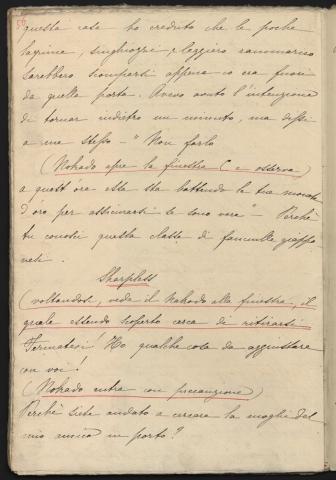 56
questa casa ho creduto che le poche
lagrime, singhiozzi e leggiero rammarico
sarebbero scomparsi appena io ero fuori
da quella porta. Avevo avuto l'intenzione
di tornar indietro un minuto, ma dissi
a me stesso – "Non farlo
(Nakado apre la finestra (e osserva)
a quest'ora ella sta battendo le tue monete
d'oro per assicurarsi se sono vere" – Perchè
tu conosci questa classe di fanciulle giappo
nesi.
Sharpless
(voltandosi, vede il Nakado alla finestra, il
quale essendo scoperto cerca di ritirarsi
Fermatevi! Ho qualche cosa da aggiustare
con voi!
(Nakado entra con precauzione)
Perchè siete andato a cercare la moglie del
mio amico in porto?